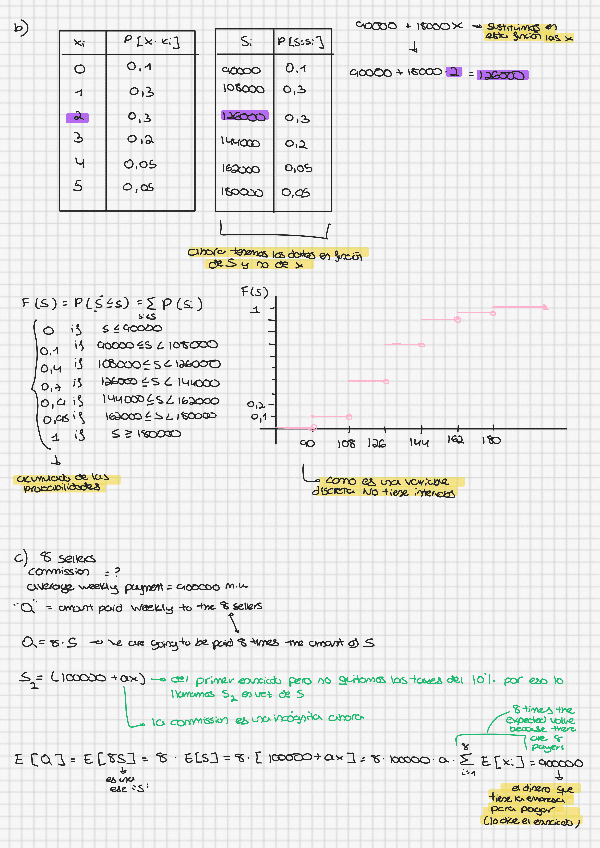 b)
xi P[x=xi]
0 0,1
1 0,3
2 0,3
3 0,2
4 0,05
5 0,05
Si P[S=si]
90000 0,1
108000 0,3
126000 0,3
144000 0,2
162000 0,05
180000 0,05
90000 + 18000x → sustituimos en
esta función las x
90000 + 18000 2 = 126000
ahora tenemos los datos en función
de S y no de x
F(S) = P(S≤s) = Σ P(si)
si≤s
0 if S≤90000
0,1 if 90000≤S<108000
0,4 if 108000≤S<126000
0,7 if 126000≤S<144000
0,9 if 144000≤S<162000
0,95 if 162000≤S<180000
1 if S≥180000
acumulado de las
probabilidades
F(S)
1
0,2
0,1
90 108 126 144 162 180
como es una variable
discreta NO tiene intervalos
c) 8 sellers
commission = ?
average weekly payment = 900000 m.u
"Q" = amount paid weekly to the 8 sellers
Q = 8·S → we are going to be paid 8 times the amount of S
S2 = (100000 + ax) → del primer enunciado pero no quitamos las taxes del 10%. por eso lo
llamamos S2 en vez de S
la commission es una incógnita ahora
8 times the
expected value
because there
are 8
payers
E[Q] = E[8S] = 8 · E[S] = 8 · [100000 + ax] = 8 · 100000 · a · Σ E[xi] = 900000
8
i=1
es una
ese "S"
el dinero que
tiene la empresa
para pagar
(lo dice el enunciado)